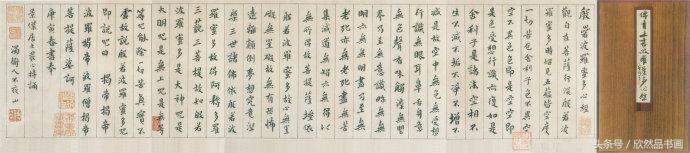 般若波羅蜜多心經
觀自在菩薩行深般若波
羅蜜多時照見五蘊皆空度
一切苦厄舍利子色不異空
空不異色色即是空空即
是色受想行識亦復如是
舍利子是諸法空相不
生不滅不垢不淨不增不
減是故空中無色無受想
行識無眼耳鼻舌身意
無色聲香味觸法無眼
界乃至無意識界無無
明亦無無明盡乃至無
老死亦無老死盡無苦
集滅道無智亦無得以
無所得故菩提薩埵依
般若波羅蜜多故心無罣
礙無罣礙故無有恐怖
遠離顛倒夢想究竟涅
槃三世諸佛依般若波
羅蜜多故得阿耨多羅
三藐三菩提故知般若
波羅蜜多是大神咒是
大明咒是無上咒是無等
等咒能除一切苦真實不
虛故說般若波羅蜜多咒
即說咒曰 揭帝揭帝
波羅揭帝波羅僧揭帝
菩提薩婆訶
庚寅春書奉
居士發心持誦
书波羅蜜多心經
头条号 / 欣然品书画